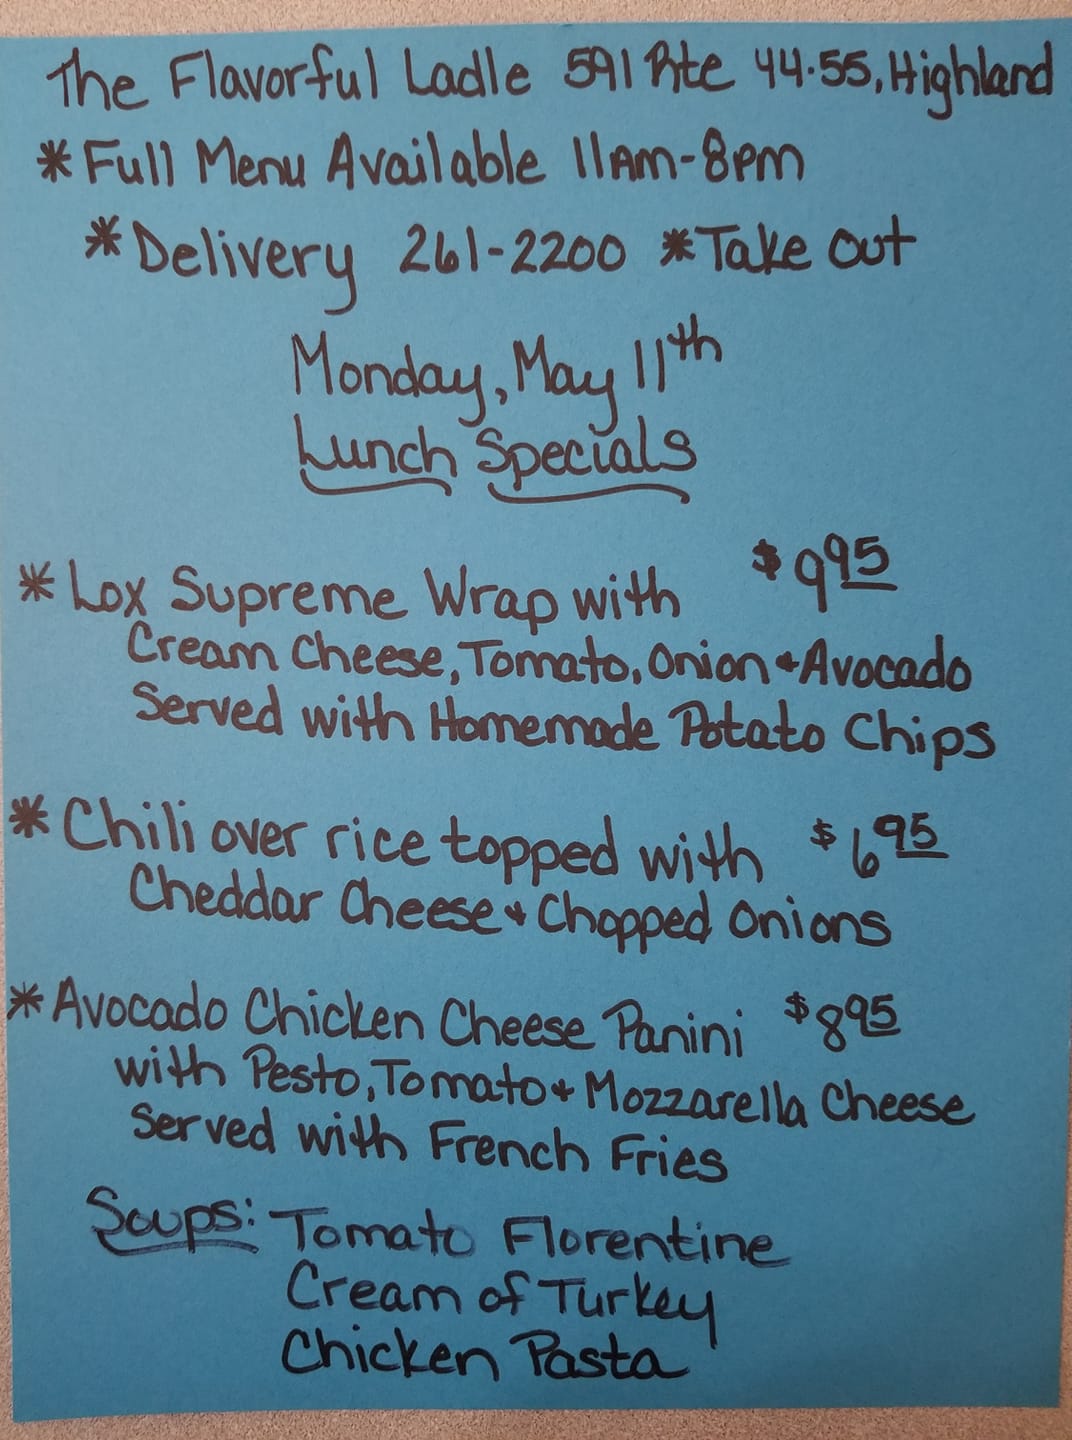 The Flavorful Ladle 591 Rte 44.55, Highland
* Full Menu Available 11AM-8PM
* Delivery 261-2200 * Take Out
Monday, May 11th
Lunch Specials
* Lox Supreme Wrap with $9 95
Cream Cheese, Tomato, Onion + Avocado
Served with Homemade Potato Chips
* Chili over rice topped with $6 95
Cheddar Cheese + Chopped Onions
* Avocado Chicken Cheese Panini $8 95
with Pesto, Tomato + Mozzarella Cheese
Served with French Fries
Soups: Tomato Florentine
Cream of Turkey
Chicken Pasta